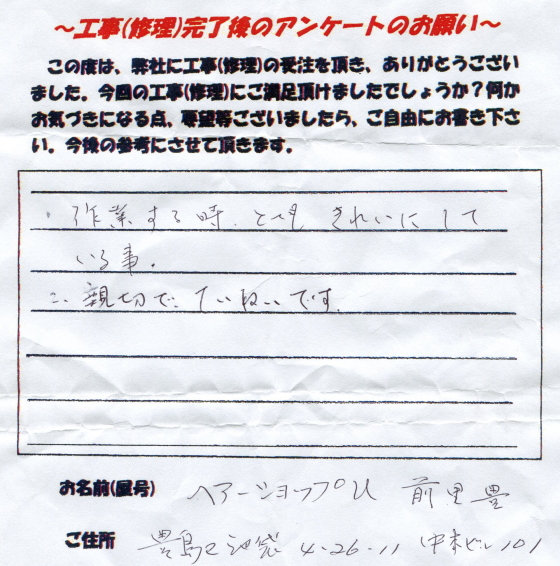 ～工事(修理)完了後のアンケートのお願い～
この度は、弊社に工事(修理)の受注を頂き、ありがとうござい
ました。今回の工事(修理)にご満足頂けましたでしょうか？何か
お気づきになる点、要望等ございましたら、ご自由にお書き下さ
い。今後の参考にさせて頂きます。
・作業する時、とてもきれいにして
いる事。
親切で、ていねいです。
お名前(屋号) ヘアーショップU 前里豊
ご住所 豊島区池袋 4-26-11 中本ビル101